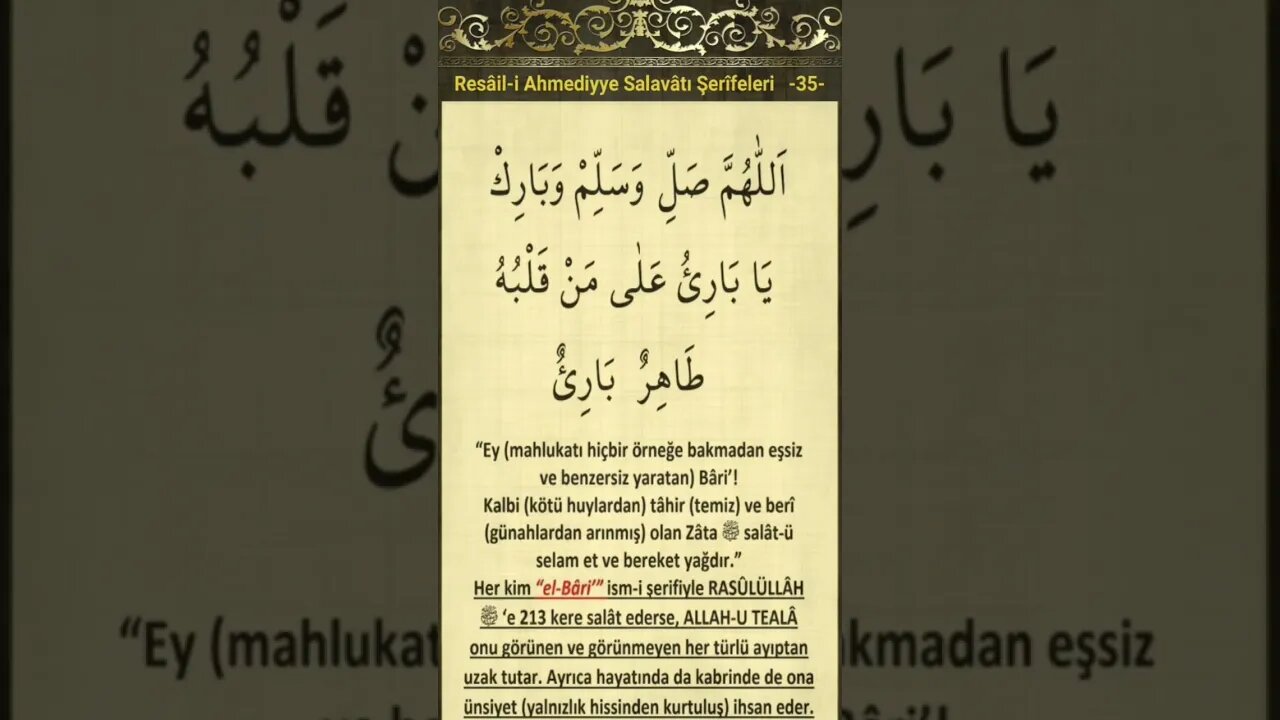 Resâil-i Ahmediyye Salavâtı Şerîfeleri -35-
اَللّٰهُمَّ صَلِّ وَسَلِّمْ وَبَارِكْ
يَا بَارِئُ عَلٰى مَنْ قَلْبُهُ
طَاهِرٌ بَارِئٌ
“Ey (mahlukatı hiçbir örneğe bakmadan eşsiz
ve benzersiz yaratan) Bâri’!
Kalbi (kötü huylardan) tâhir (temiz) ve berî
(günahlardan arınmış) olan Zâta ﷺ salât-ü
selam et ve bereket yağdır.”
Her kim “el-Bâri’” ism-i şerifiyle RASÛLÜLLÂH
ﷺ ‘e 213 kere salât ederse, ALLAH-U TEALÂ
onu görünen ve görünmeyen her türlü ayıptan
uzak tutar. Ayrıca hayatında da kabrinde de ona
ünsiyet (yalnızlık hissinden kurtuluş) ihsan eder.